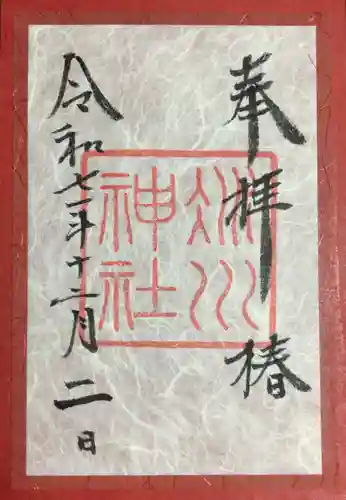 奉拝 椿
氷川神社
令和七年十二月二日